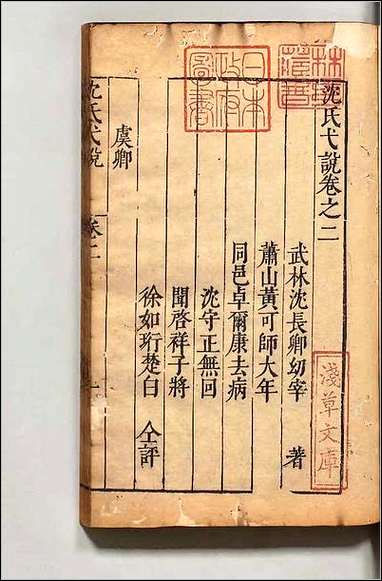 沈氏弋說卷之二
武林沈長卿幼宰 著
蕭山黃可師大年
同邑卓爾康去病
沈守正無回
聞啓祥子將
徐如珩楚白 仝評
虞卿
沈氏弋說 卷二 一
日本
政府
圖書
淺草文庫